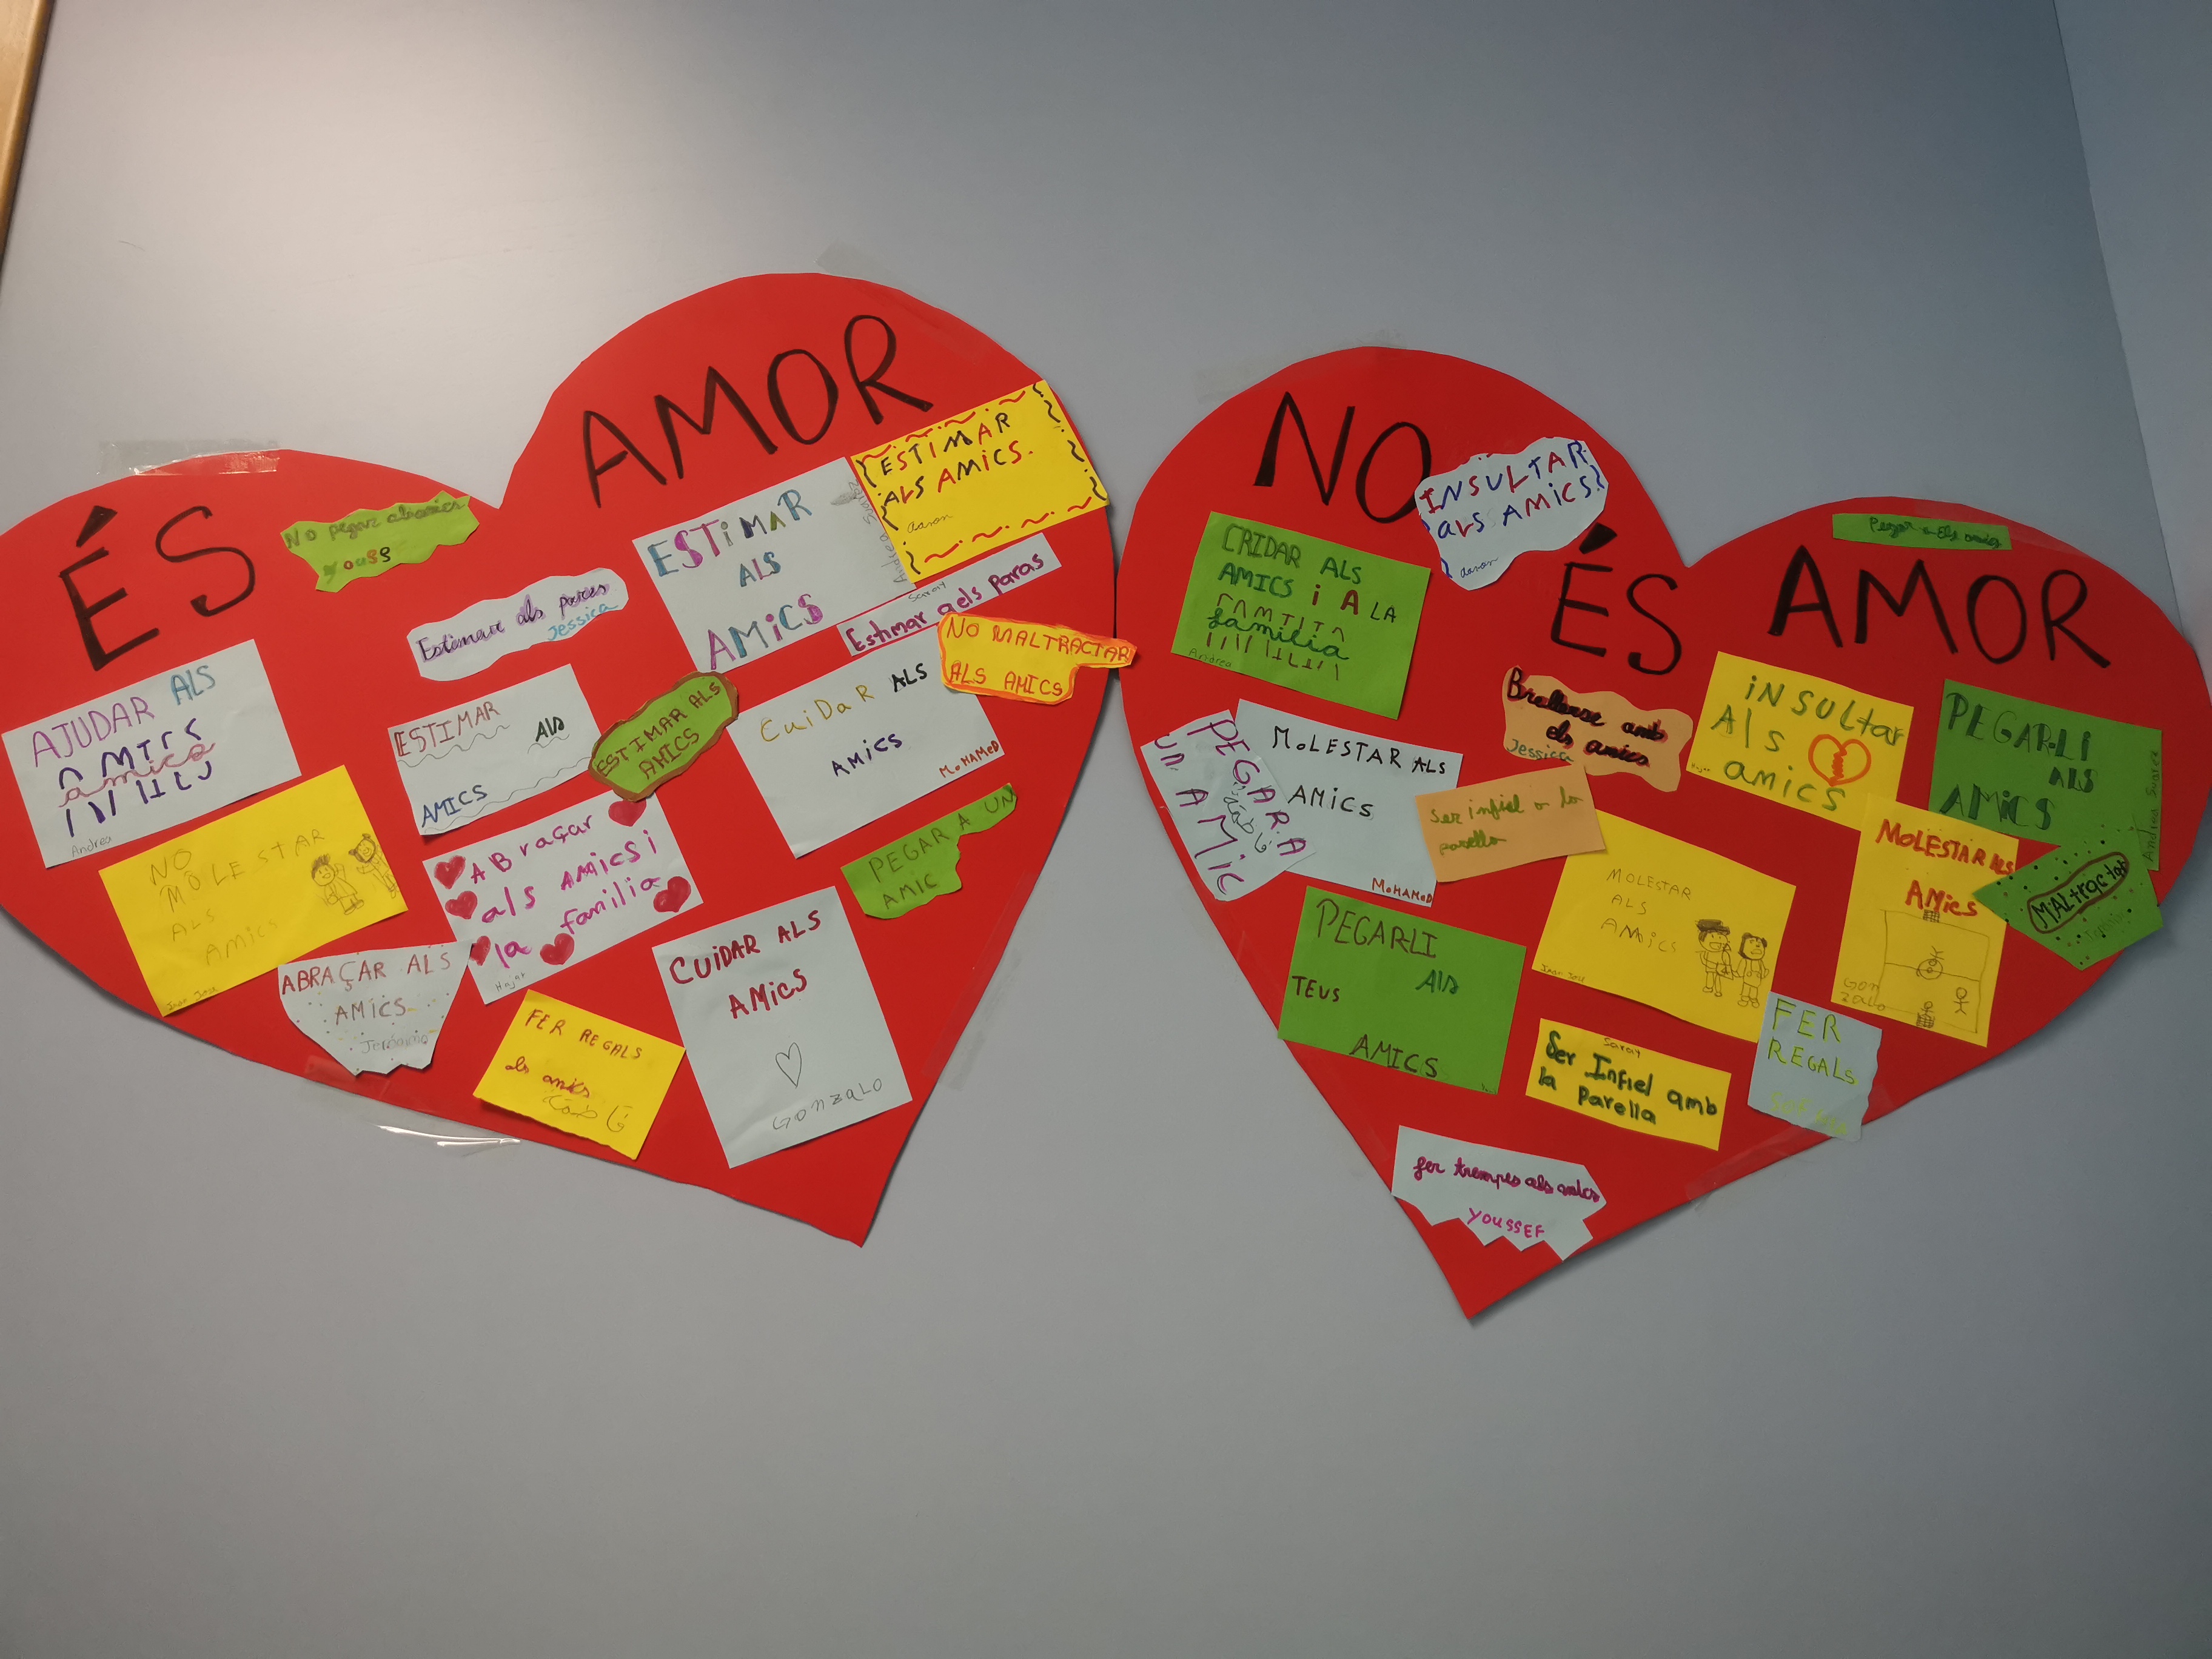 ÉS AMOR
No pegar
youss
Estimar als pares
Jessica
ESTIMAR
ALS
AMiCS
Andrea Suarez
ESTIMAR
ALS AMiCS.
Aaron
Saray
Estimar aels paras
NO MALTRACTAR
ALS AMICS
AJUDAR ALS
amics
Andrea
ESTIMAR Als
AMICS
ESTIMAR ALS
AMICS
CuiDaR ALS
AMiCS
MoHAMeD
NO
MOLESTAR
ALS
AMiCS
Juan Jose
ABraçar
als AMiCS i
la familia
Hajar
PEGAR A UN
AMIC
ABRAÇAR ALS
AMICS
Jerónimo
FER REGALS
als amics
CUiDAR ALS
AMiCS
GONZALO
NO ÉS AMOR
INSULTAR
ALS AMICS!
Aaron
Pegar a els amics
CRIDAR ALS
AMICS i A LA
familia
Andrea
PEGAR A
UN AMiC
MoLESTAR ALS
AMiCS
MoHAMeD
Barallarse amb
els amics
Jessica
Ser infiel a la
parella
iNSULtar
Als
amics
Hajar
PEGAR-LI
ALS
AMiCS
Andrea Suarez
MOLESTAR ALS
AMics
GON
ZALO
MALtractar
MOLESTAR
ALS
AMiCS
Juan Jose
PEGAR-LI
TEUS Als
AMICS
Saray
Ser Infiel amb
la Parella
FER
REGALS
fer trempes als amics
YOUSSEF